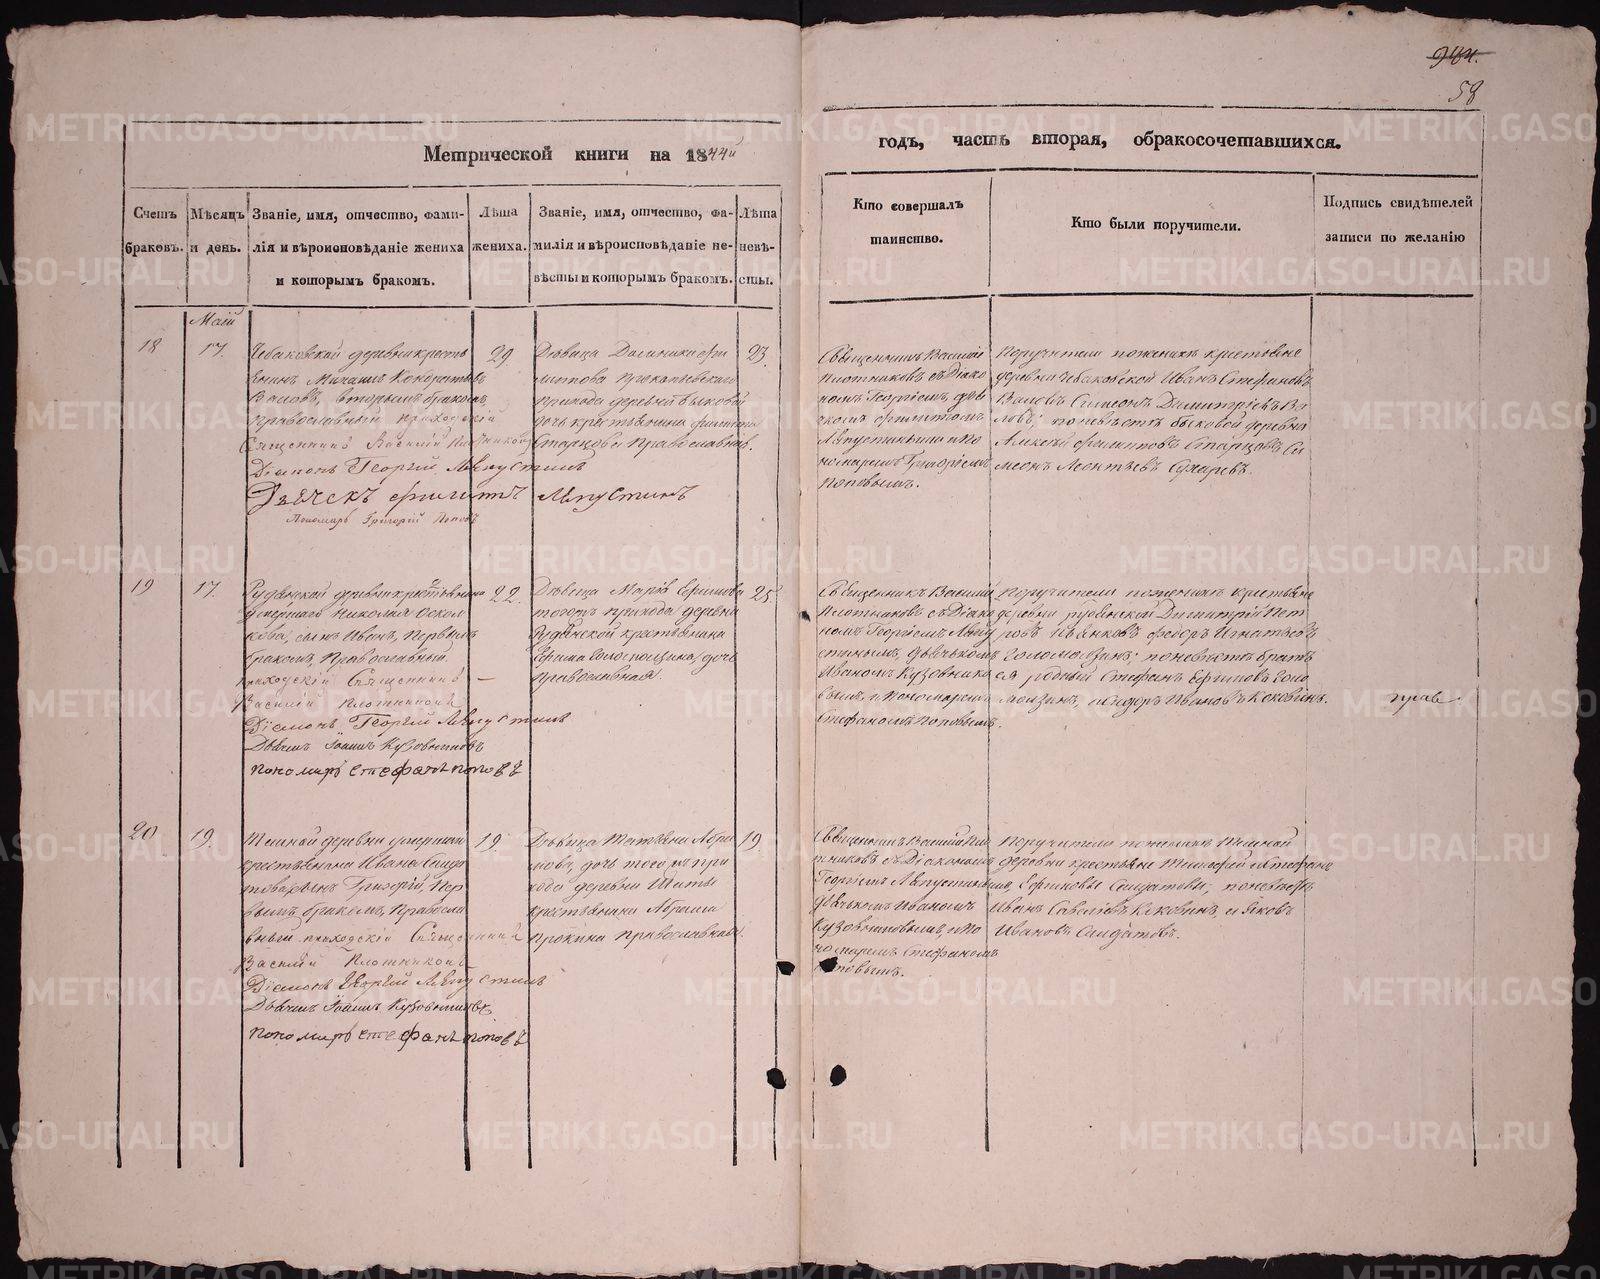 58
Метрической книги на 1844й
годъ, часть вторая, обракосочетавшихся.
Счетъ браковъ.
Мѣсяцъ и день.
Званіе, имя, отчество, фами-
лія и вѣроисповѣданіе жениха
и которымъ бракомъ.
Лѣта
жениха.
Званіе, имя, отчество, фа-
милія и вѣроисповѣданіе не-
вѣсты и которымъ бракомъ.
Лѣта
невѣ-
сты.
Кто совершалъ
таинство.
Кто были поручители.
Подпись свидѣтелей
записи по желанію
Маій
18
17.
Чебаковской деревни кресть
янинъ Михаилъ Кондратьевъ
Валовъ, вторымъ бракомъ,
православный приходскій
Священникъ Василій Плотниковъ
Діаконъ Георгій Августинъ
Дьячекъ Филиппъ Августинъ
Пономарь Григорій Поповъ
29
Дѣвица Фи
липпова Прокопьевскаго
прихода деревни Быковой
дочь крестьянина Филиппа
Старцова Православная.
23
Священникъ Василій
Плотниковъ съ Діако
номъ Георгіемъ, дья
чкомъ Филиппомъ
Августинымъ и По
номаремъ Григоріемъ
Поповымъ.
Поручители по женихѣ крестьяне
деревни Чебаковской Иванъ Стефановъ
Валовъ Симеонъ Димитріевъ Ва
ловъ; по невѣстѣ Быковой деревни
Алексѣй Филипповъ Старцовъ Си
меонъ Леонтьевъ Сухаревъ.
19
17.
Рудянской деревни крестьянина
умершаго Николая Оскол
кова, сынъ Иванъ, Первымъ
бракомъ, Православный.
приходскій Священникъ
Василій Плотниковъ
Діаконъ Георгій Августинъ
Дьячекъ Іоаннъ Кузовниковъ
Пономарь Стефанъ Поповъ
22.
Дѣвица Марія Ефимова
тогожъ прихода деревни
Рудянской крестьянина
Ефима дочь
Православная.
25
Священникъ Василій
Плотниковъ съ Діако
номъ Георгіемъ Авгу
стинымъ, дьячкомъ
Иваномъ Кузовнико
вымъ, и Пономаремъ
Стефаномъ Поповымъ.
Поручители по женихѣ крестьяне
деревни Рудянской Димитрій Пет
ровъ Федоръ Игнатьевъ
Голомазинъ; по невѣстѣ братъ
ея родный Стефанъ Ефимовъ Голо
мазинъ, Иванов Коковинъ.
20
19.
деревни умершаго
крестьянина Ивана Солда
това сынъ Григорій, Пер
вымъ бракомъ, Правосла
вный приходскій Священникъ
Василій Плотниковъ
Діаконъ Георгій Августинъ
Дьячекъ Іоаннъ Кузовниковъ
Пономарь Стефанъ Поповъ
19.
Дѣвица Татьяна Абра
мова, дочь тогожъ при
хода деревни Шаты
крестьянина Абрама
Прокина Православная.
19
Священникъ Василій Пло
тниковъ съ Діакономъ
Георгіемъ Августинымъ,
дьячкомъ Иваномъ
Кузовниковымъ, и По
номаремъ Стефаномъ
Поповымъ.
Поручители по женихѣ
деревни крестьяне Тимофей и Стефанъ
Ефимовы Солдатовы, по невѣстѣ
Иванъ Савельевъ Коковинъ, и Яковъ
Ивановъ Солдатовъ.